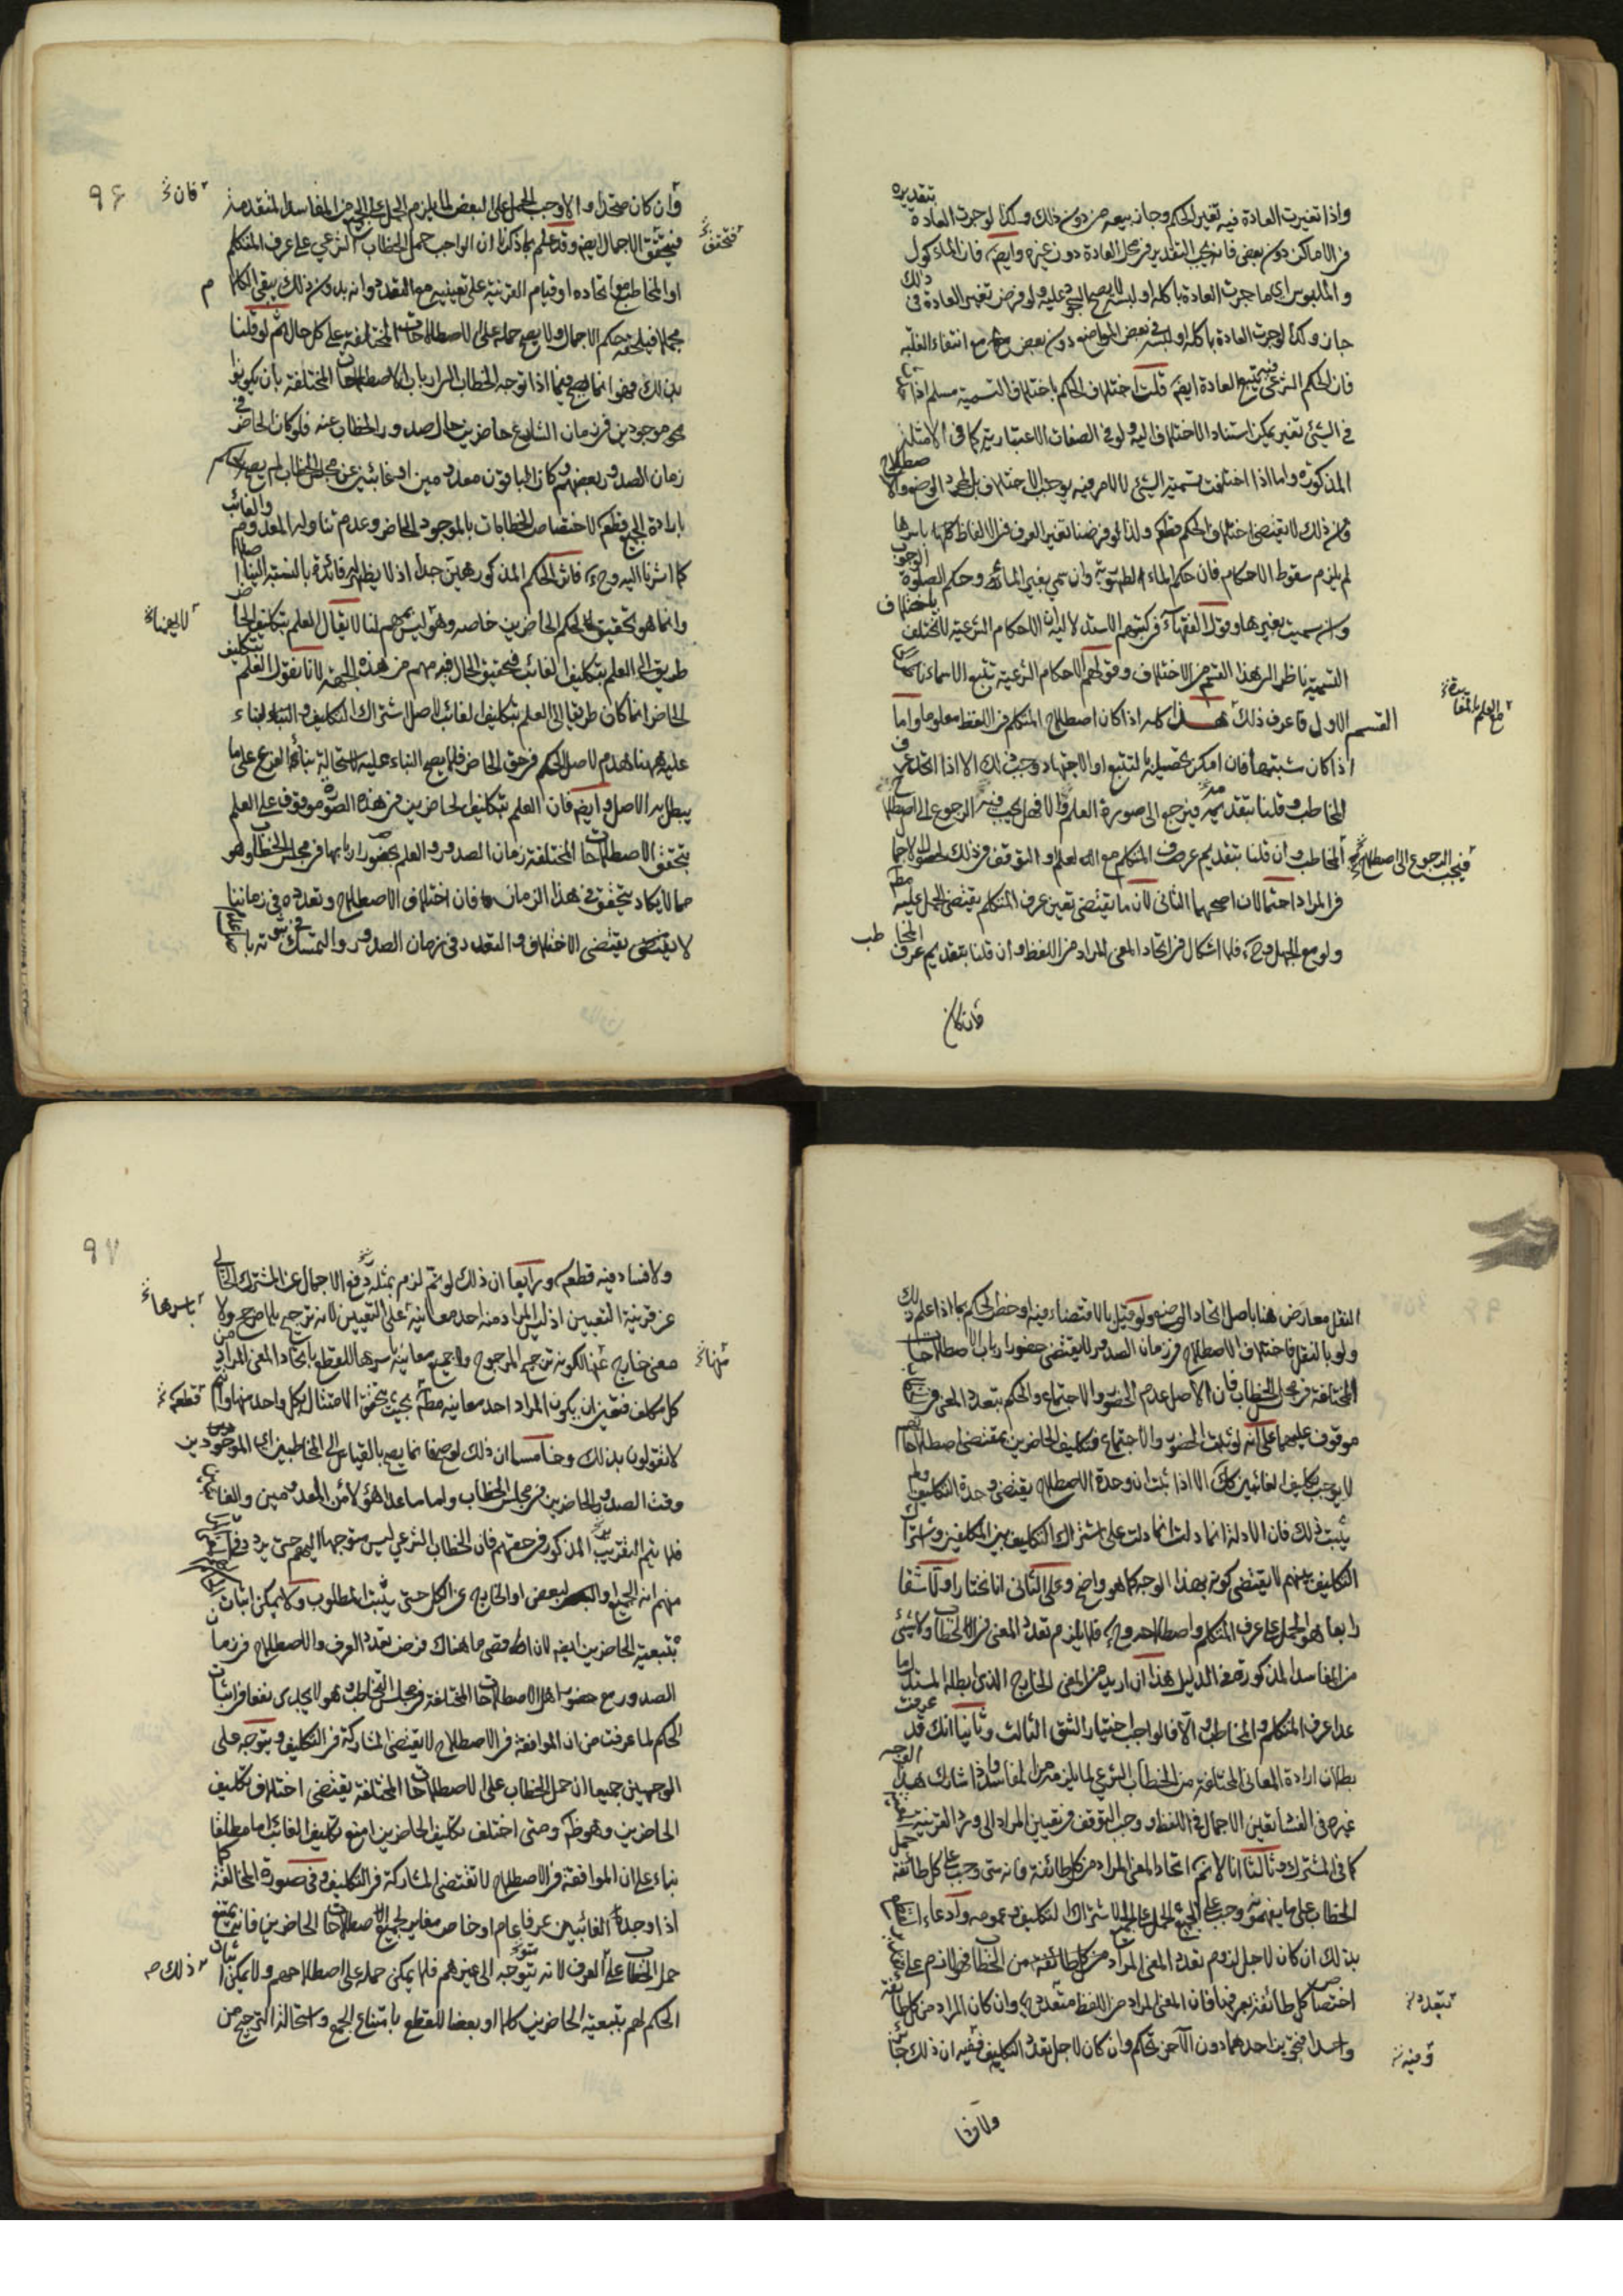 واذا تغيرت العادة فيه تغير الحكم وجاز بيعه من دون ذلك وكذا لو جرت العادة بتقديره
في الاماكن دون بعض فانه يجب التقدير في محل العادة دون غيره وايضا فان الماكول
والملبوس اي ما جرت العادة باكله او لبسه لا يصح السجود عليه ولو فرض تغير العادة في ذلك
جاز وكذا لو جرت العادة باكله او لبسه في بعض المواضع دون بعض مع انتفاء الغلبة
فان الحكم الشرعي يتبع العادة ايضا قلت اختلاف الحكم باختلاف التسمية مسلم اذا
في الشيئ تغير يمكن استناد الاختلاف اليه ولو في الصفات الاعتبارية كما في الامثلة
المذكورة واما اذا اختلفت تسمية الشيئ لا لامر فيه يوجب الاختلاف بل لمجرد الوضع والاصطلاح
فان ذلك لا يقتضي اختلاف الحكم قطعا ولذا لو فرضنا تغير العرف في الالفاظ كلها باسرها
لم يلزم سقوط الاحكام فان حكم الماء الطهورية وان سمي بغير الماء وحكم الصلوة الوجوب
وان سميت بغيرها وقول الفقهاء في كتبهم الاستدلالية ان الاحكام الشرعية لا تختلف باختلاف
التسمية ناظر الى هذا القسم من الاختلاف وقولهم الاحكام الشرعية تتبع الاسماء
القسم الاول فاعرف ذلك هذا كله اذا كان اصطلاح المتكلم في اللفظ معلوما واما
اذا كان مشتبها فان امكن تحصيله بالتتبع او الاجتهاد وجب ذلك الا اذا اتحد عرف
المخاطب وقلنا بتقديمه فيرجع الى صورة العلم والا فهل يجب فيه الرجوع الى اصطلاح
فيجب الرجوع الى اصطلاح
المخاطب وان قلنا بتقديم عرف المتكلم مع العلم او التوقف في ذلك لحصول الاجمال
في المراد احتمالان اصحهما الثاني لان ما يقتضي تعين عرف المتكلم يقتضي الحمل عليه مطلقا
ولو مع الجهل وح فلا اشكال في اتحاد المعنى المراد من اللفظ وان قلنا بتقديم عرف المخاطب
فان كان
٩٦
فان
وان كان متحدا والا وجب الحمل على البعض لما يلزم الحمل على الجميع من المفاسد المتقدمة
فيتحقق الاجمال ايضا وقد علم بما ذكرنا ان الواجب حمل الخطاب الشرعي على عرف المتكلم
او المخاطب مع اتحاده او قيام القرينة على تعيينه مع التعدد وانه بدون ذلك يبقى الكلام
مجملا فيلحقه حكم الاجمال ولا يصح حمله على الاصطلاحات المختلفة على كل حال ثم لو قلنا
بذلك فهو انما يصح فيما اذا توجه الخطاب الى ارباب الاصطلاحات المختلفة بان يكونوا
موجودين في زمان الشارع حاضرين حال صدور الخطاب عنه فلو كان الحاضر في
زمان الصدور بعضهم وكان الباقون معدومين او غائبين عن مجلس الخطاب لم يصح الحكم
بارادة الجميع قطعا لاختصاص الخطابات بالموجود الحاضر وعدم تناوله المعدوم والغائب
كما اشرنا اليه وح فاثر الحكم المذكور هين جدا اذ لا يظهر له فائدة بالنسبة الينا اصلا
وانما هو تحقيق لحكم الحاضرين خاصه وهو ليس بمهم لنا لا يقال العلم بتكليف الحاضر
طريق الى العلم بتكليف الغائب فتحقيق الحال فيه مهم من هذه الجهة لانا نقول العلم بتكليف
الحاضر انما كان طريقا الى العلم بتكليف الغائب لاصل اشتراك التكليف والبناء
عليه ههنا هدم لاصل الحكم في حق الحاضر فلا يصح البناء عليه لاستحالة بناء الفرع على ما
يبطل به الاصل وايضا فان العلم بتكليف الحاضرين في هذه الصورة موقوف على العلم
بتحقق الاصطلاحات المختلفة زمان الصدور والعلم بحضور اربابها في مجلس الخطاب وهو
مما لا يكاد يتحقق في هذا الزمان فان اختلاف الاصطلاح وتعدده في زماننا
لا يقتضي الاختلاف والتعدد في زمان الصدور والتمسك في ثبوته باصالة عدم
النقل معارض هنا باصل اتحاد الوضع ولو قيل بالاقتضاء فيه او خص الحكم بما اذا علم ذلك
ولو بالنقل فاختلاف الاصطلاح في زمان الصدور لا يقتضي حضور ارباب الاصطلاحات
المختلفة في محل الخطاب فان الاصل عدم الحضور والاجتماع والحكم بتعدد المعنى
موقوف عليهما على انه لو ثبت الحضور والاجتماع فتكليف الحاضرين بمقتضى اصطلاحاتهم
لا يوجب تكليف الغائبين كك الا اذا ثبت ان وحدة الاصطلاح يقتضي وحدة التكليف ولم
يثبت ذلك فان الادلة انما دلت على اشتراك التكليف بين المكلفين واشتراك
التكليف بينهم لا يقتضي كونه بهذا الوجه كما هو واضح وعلى الثاني انا نختار اولا شقا
رابعا هو الحمل على عرف المتكلم واصطلاحه وح فلا يلزم تعدد المعنى في الخطاب ولا شيئ
من المفاسد المذكورة في الدليل هذا ان اريد من المعنى الخارج الذي ابطله المستدل ما
عدا عرف المتكلم والمخاطب والا فالواجب اختيار الشق الثالث وثانيا انك قد عرفت
بطلان ارادة المعاني المختلفة من الخطاب الشرعي لما يلزمه من المفاسد واذا شارك هذا الوجه
غيره في الفساد تعين الاجمال في اللفظ ووجب التوقف في تعيين المراد الى ورود القرينة
كما في المشترك وثالثا انا لا نم اتحاد المعنى المراد من كل طائفة فانه متى وجب على كل طائفة حمل
الخطاب على ما يفهمونه وجب على الجميع الحمل على الجميع لاشتراك التكليف وعمومه وادعاء
بذلك ان كان لاجل لزوم تعدد المعنى المراد من كل طائفة من الخطاب فهو لازم على
اختصاص كل طائفة بعرفها فان المعنى المراد من اللفظ متعدد ح وان كان المراد من كل طائفة
واحدا فتجويز احدهما دون الآخر تحكم وان كان لاجل تعدد التكليف ففيه ان ذلك جائز
ولا فساد
٩٧
ولا فساد فيه قطعا ورابعا ان ذلك لو تم لزم بمثله دفع الاجمال عن المشترك الخالي
عن قرينة التعيين اذ ليس المراد منه احد معانيه على التعيين لانه ترجيح بلا مرجح ولا
معنى خارج عنها لكونه ترجيح المرجوح ولا جميع معانيه باسرها للقطع باتحاد المعنى المراد من
كل مكلف فتعين ان يكون المراد احد معانيه مطلقا بحيث يتحقق الامتثال بكل واحد منها وانتم
لا تقولون بذلك وخامسا ان ذلك لو صح فانما يصح بالقياس الى المخاطبين اي الموجودين
وقت الصدور الحاضرين في مجلس الخطاب واما ما عدا هؤلاء من المعدومين والغائبين
فلا يتم التقريب المذكور في حقهم فان الخطاب الشرعي ليس متوجها اليهم حتى يردد في
منهم انه الجميع او البعض او الخارج عن الكل حتى يثبت المطلوب ولا يمكن اثبات
بتبعية الحاضرين ايضا لان اقصى ما هناك فرض تعدد العرف والاصطلاح في زمان
الصدور مع حضور اهل الاصطلاحات المختلفة في مجلس التخاطب وهو لا يجدي نفعا في اثبات
الحكم لما عرفت من ان الموافقة في الاصطلاح لا يقتضي المشاركة في التكليف ويتوجه على
الوجهين جميعا ان حمل الخطاب على الاصطلاحات المختلفة يقتضي اختلاف تكليف
الحاضرين وهو ظ ومتى اختلف تكليف الحاضرين امتنع تكليف الغائب اما مطلقا
بناء على ان الموافقة في الاصطلاح لا تقتضي المشاركة في التكليف او في صورة المخالفة كما
اذا وجد للغائبين عرف عام او خاص مغاير لجميع اصطلاحات الحاضرين فانه يمتنع
حمل الخطاب على العرف لانه يتوجه الى غيرهم فلا يمكن حمله على اصطلاحهم ولا يمكن اثبات
الحكم لهم بتبعية الحاضرين كلا او بعضا للقطع بامتناع الجمع واستحالة الترجيح من